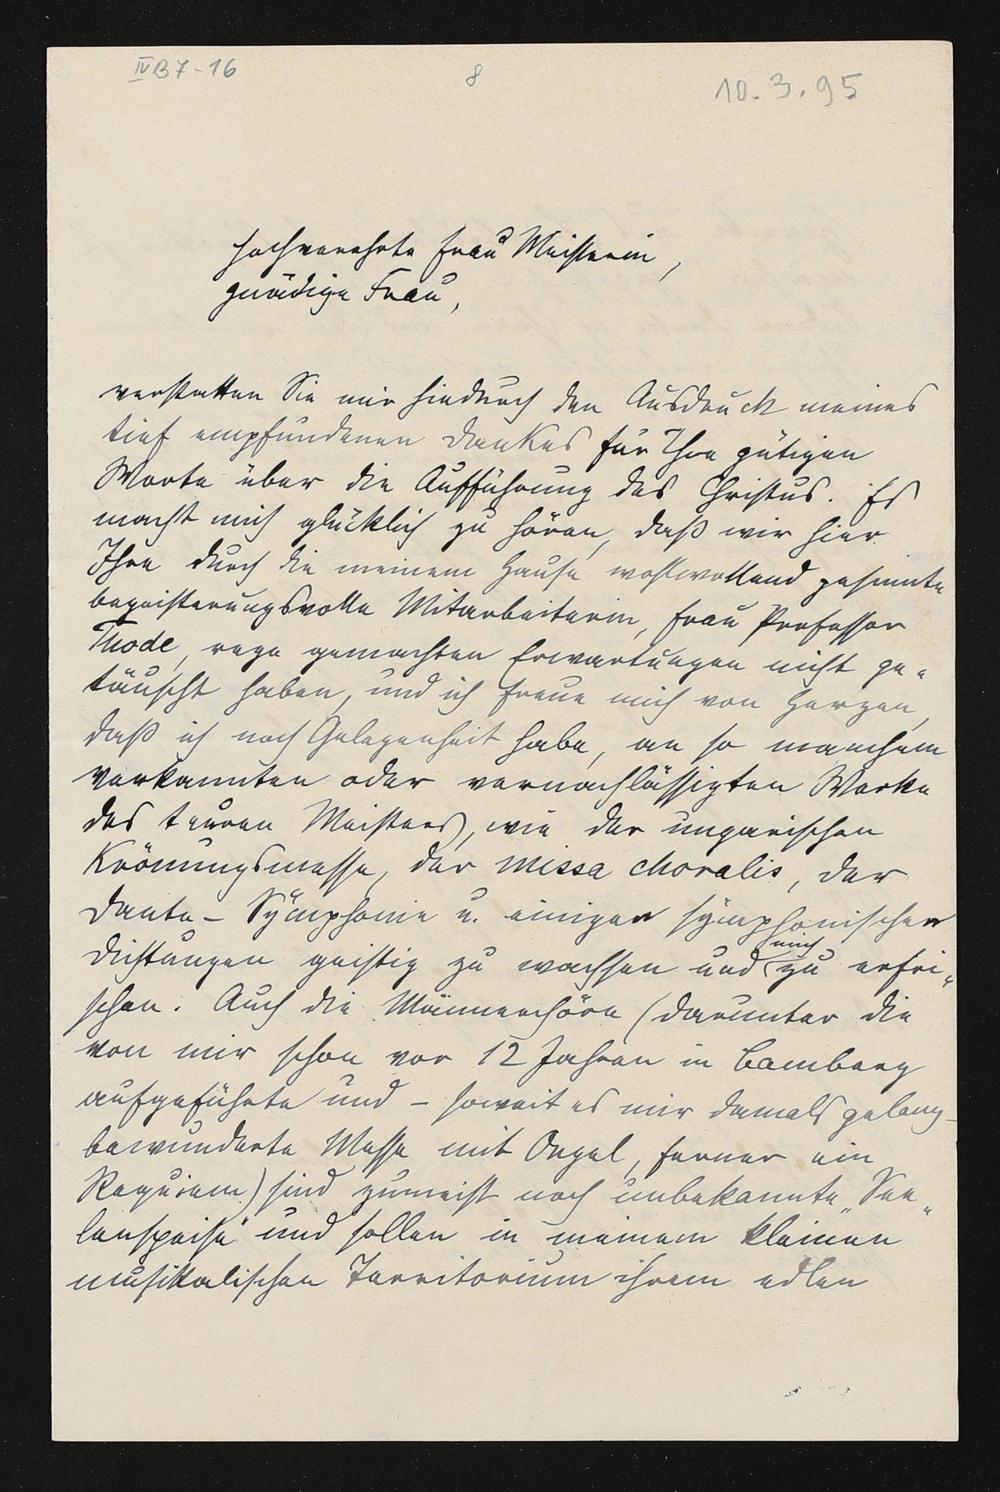 IV B 7-16
8
10. 3. 95
Hochverehrte Frau Meisterin,
gnädige Frau,
verstatten Sie mir hiedurch den Ausdruck meines
tief empfundenen Dankes für Ihre gütigen
Worte über die Aufführung des Christus. Es
macht mich glücklich zu hören, daß wir hier
Ihre durch die meinem Hause wohlwollend gesinnte
begeisterungsvolle Mitarbeiterin, Frau Professor
Thode, rege gemachten Erwartungen nicht ge-
täuscht haben, und ich freue mich von Herzen,
daß ich noch Gelegenheit habe, an so manchem
verkannten oder vernachlässigten Werke
des teuren Meisters, wie der ungarischen
Krönungsmesse, der missa choralis, der
Dante-Symphonie u. einigen symphonischen
Dichtungen geistig zu wachsen und mich zu erfri-
schen. Auch die Männerchöre (darunter die
von mir schon vor 12 Jahren in Bamberg
aufgeführte und - soweit es mir damals gelang -
bewunderte Messe mit Orgel, ferner ein
Requiem) sind zumeist noch unbekannte „See-
lenspeise“ und sollen in meinem kleinen
musikalischen Territorium ihrem edlen